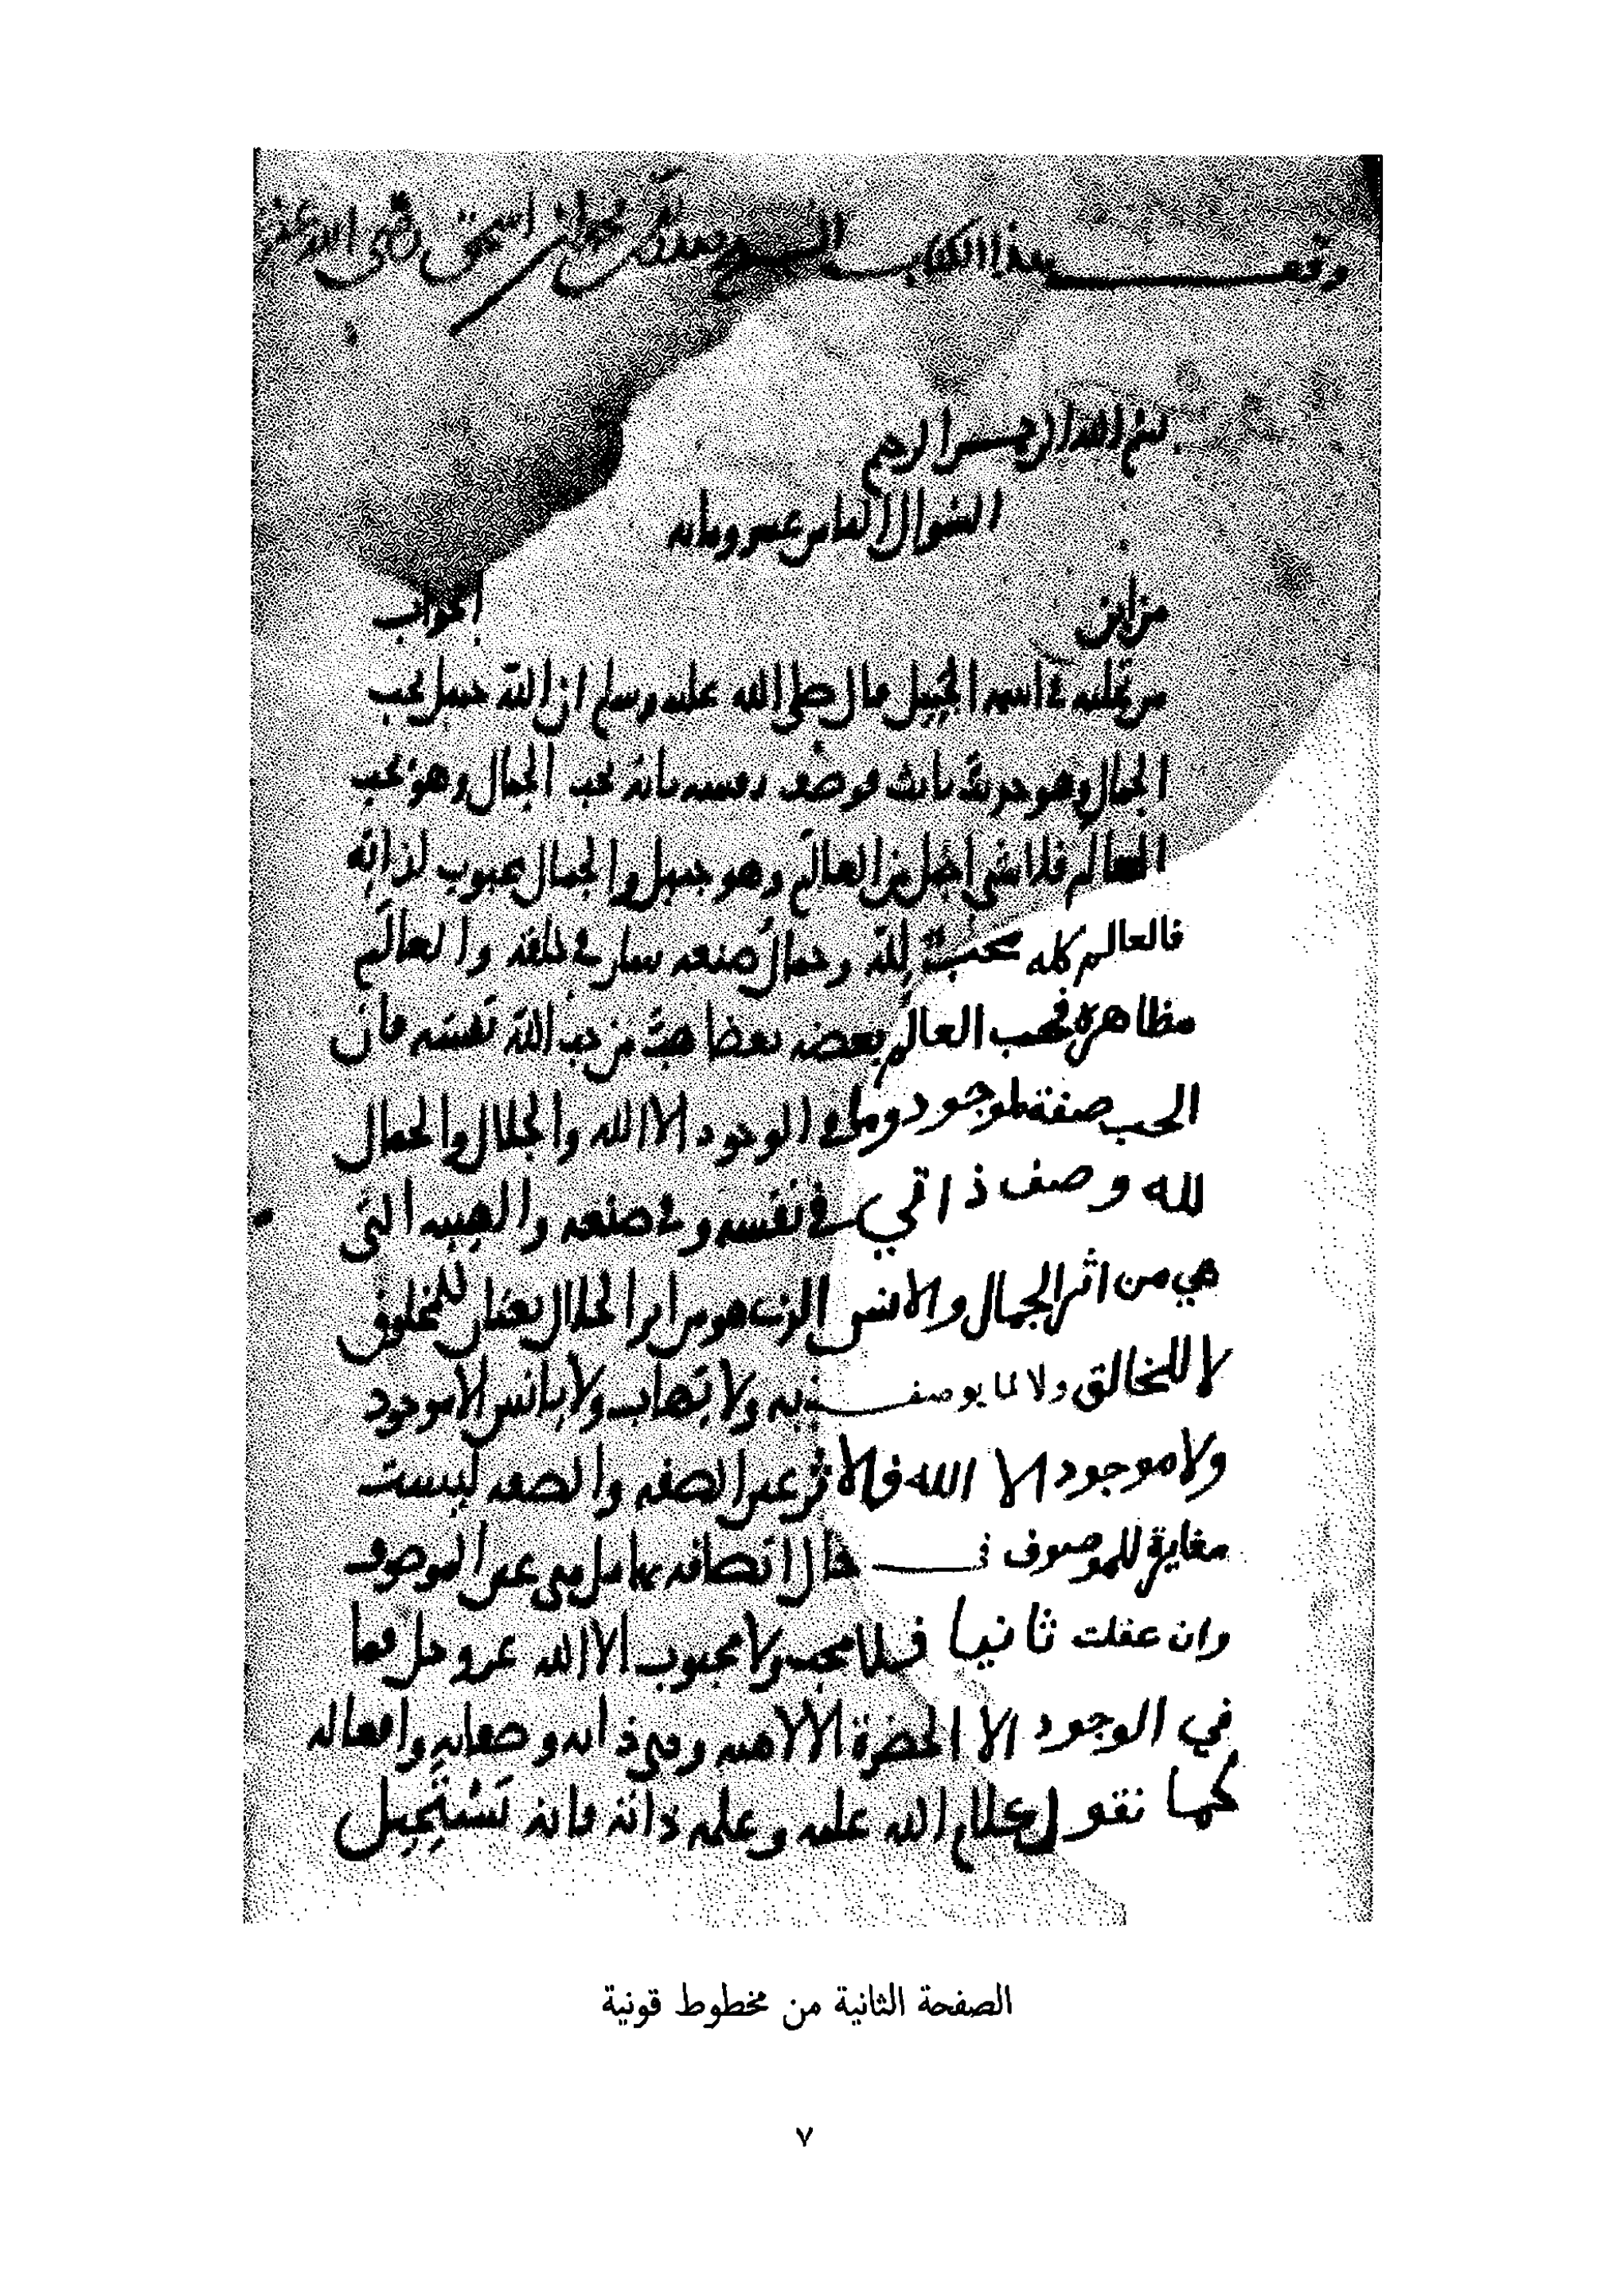 وقف هذا الكتاب الشيخ صدر الدين اسحق رضي الله عنه
بسم الله الرحمن الرحيم
السؤال الثامن عشر ومائه
من اين
الجواب
من تجليه في اسمه الجميل قال صلى الله عليه وسلم ان الله جميل يحب
الجمال وهو حديث ثابت فوصف نفسه بانه يحب الجمال وهو يحب
العالم فلا شى اجمل من العالم وهو جميل والجمال محبوب لذاته
فالعالم كله محب لله وجمال صنعه سار في خلقه والعالم
مظاهره فحب العالم بعضه بعضا هو من حب الله نفسه فان
الحب صفة لموجود وما في الوجود الا الله والجلال والجمال
لله وصف ذاتي في نفسه وفي صنعه والهيبه التي
هي من اثر الجمال والانس الذي هو من اثر الجلال نعتان للمخلوق
لا للخالق ولا لما يوصف به ولا يهاب ولا يانس الا موجود
ولا موجود الا الله فالاثر عين الصفه والصفه ليست
مغايرة للموصوف في حال اتصافه بها بل هي عين الموصوف
وان عقلت ثانيا فلا محب ولا محبوب الا الله عز وجل فما
في الوجود الا الحضرة الالاهيه وهي ذاته وصفاته وافعاله
كما نقول كلام الله علمه وعلمه ذاته فانه يستحيل
الصفحة الثانية من مخطوط قونية
٧